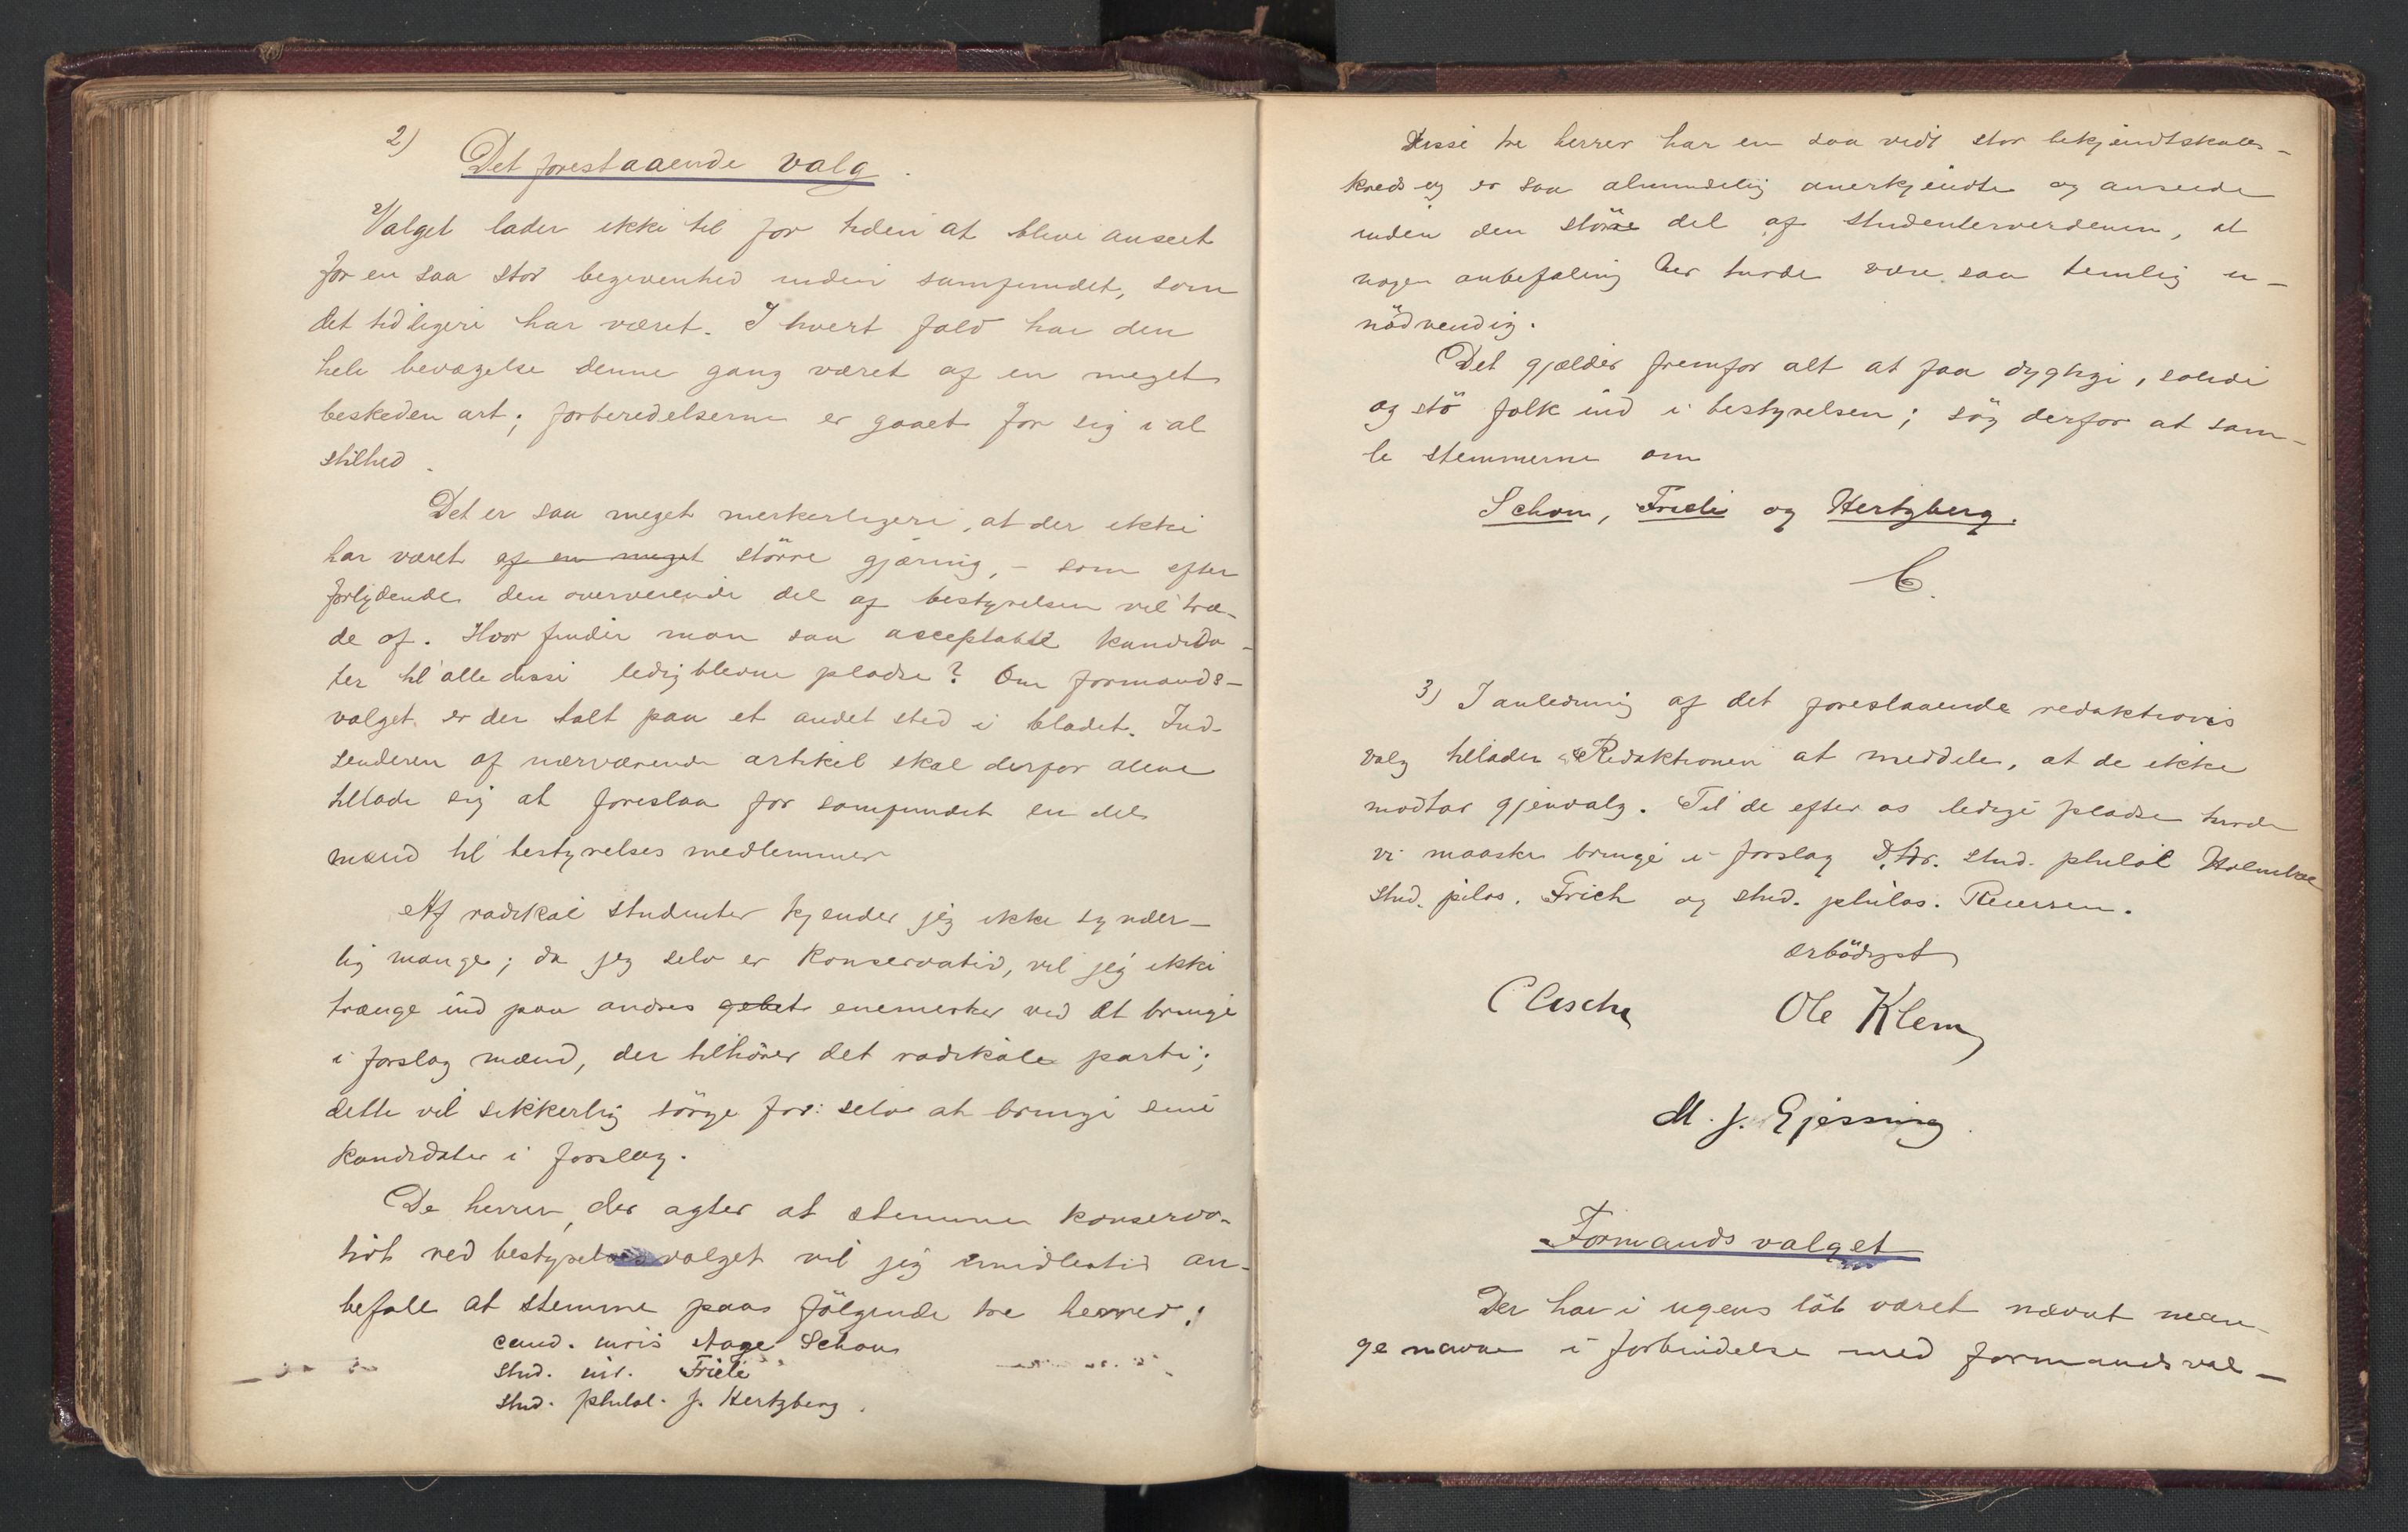 2)
Det forestaaende valg.
Valget lader ikke til for tiden at blive anseet
for en saa stor begivenhed inden samfundet, som
det tidligere har været. I hvert fald har den
hele bevægelse denne gang været af en meget
beskeden art; forberedelserne er gaaet for sig i al
stilhed.
Det er saa meget merkerligere, at der ikke
har været af en meget större gjæring, - som efter
forlydende den overveiende del af bestyrelsen vil træ-
de af. Hvor finder man saa acceptable kandida-
ter til alle disse ledigblevne pladse? Om formands-
valget er der talt paa et andet sted i bladet. Ind-
senderen af nærværende artikel skal derfor alene
tillade sig at foreslaa for samfundet en del
mænd til bestyrelses medlemmer
Af radikale studenter kjender jeg ikke synder-
lig mange; da jeg selv er konservativ, vil jeg ikke
trænge ind paa andres gebet enemerker ved at bringe
i forslag mænd, der tilhörer det radikale parti;
dette vil sikkerlig sörge for selv at bringe sine
kandidater i forslag.
De herrer, der agter at stemme konserva-
tivt ved bestyrelsesvalget vil jeg imidlertid an-
befale at stemme paa fölgende tre herrer:
cand. juris Aage Schou
stud. jur. Friele
stud. philol. J. Hertzberg.
Disse tre herrer har en saa vidt stor bekjendtskabs-
kreds og er saa almindelig anerkjendte og ansede
inden den större del af studenterverdenen, at
nogen anbefaling her turde være saa temlig u-
nödvendig.
Det gjælder fremfor alt at faa dygtige, solide
og stö folk ind i bestyrelsen; sög derfor at sam-
le stemmerne om
Schou, Friele og Hertzberg.
C.
3) I anledning af det forestaaende redaktions
valg tillader Redaktionen at meddele, at de ikke
modtar gjenvalg. Til de efter os ledige pladse turde
vi maaske bringe i forslag D'Hr. stud. philol Holmboe
stud. pilos. Frich og stud. philos. Reuersen.
ærbödigst
C Casche Ole Klem
M. J. Gjessing.
Formandsvalget
Der har i ugens löb været nævnt man-
ge navne i forbindelse med formandsval-